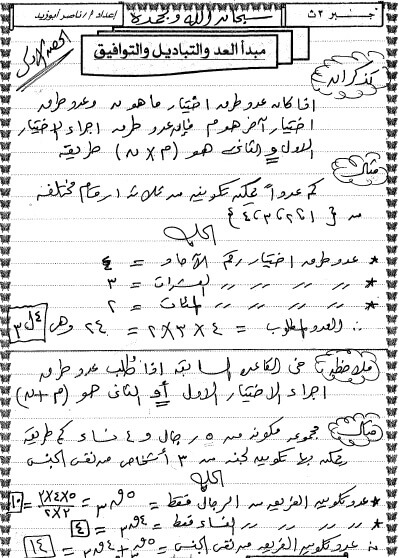 جبر ٣ث
سبحان الله وبحمده
إعداد أ/ ناصر أبوزيد
مبدأ العد والتباديل والتوافيق
تذكر أنه
إذا كان عدد طرق اختيار ما هو ن وعدد طرق
اختيار آخر هو م فإن عدد طرق إجراء الاختيار
الأول و الثاني هو (م × ن) طريقة
مثال
كم عدداً يمكن تكوينه من ثلاثة أرقام مختلفة
من {١، ٢، ٣، ٤}
الحل
* عدد طرق اختيار رقم الآحاد = ٤
* // // // العشرات = ٣
* // // // المئات = ٢
∴ العدد المطلوب = ٤ × ٣ × ٢ = ٢٤ وهى ٤ل٣
ملاحظة في القاعدة السابقة إذا طلب عدد طرق
إجراء الاختيار الأول أو الثاني هو (م + ن)
مثال مجموعة مكونة من ٥ رجال و ٤ نساء كم طريقة
يمكن بها تكوين لجنة من ٣ أشخاص من نفس الجنس
الحل
* عدد تكوين الفريق من الرجال فقط = ٥ق٣ = ٥×٤×٣ / ٣×٢ = ١٠
* // // // النساء فقط = ٤ق٣ = ٤
∴ عدد تكوين الفريق من نفس الجنس = ٥ق٣ + ٤ق٣ = ١٤